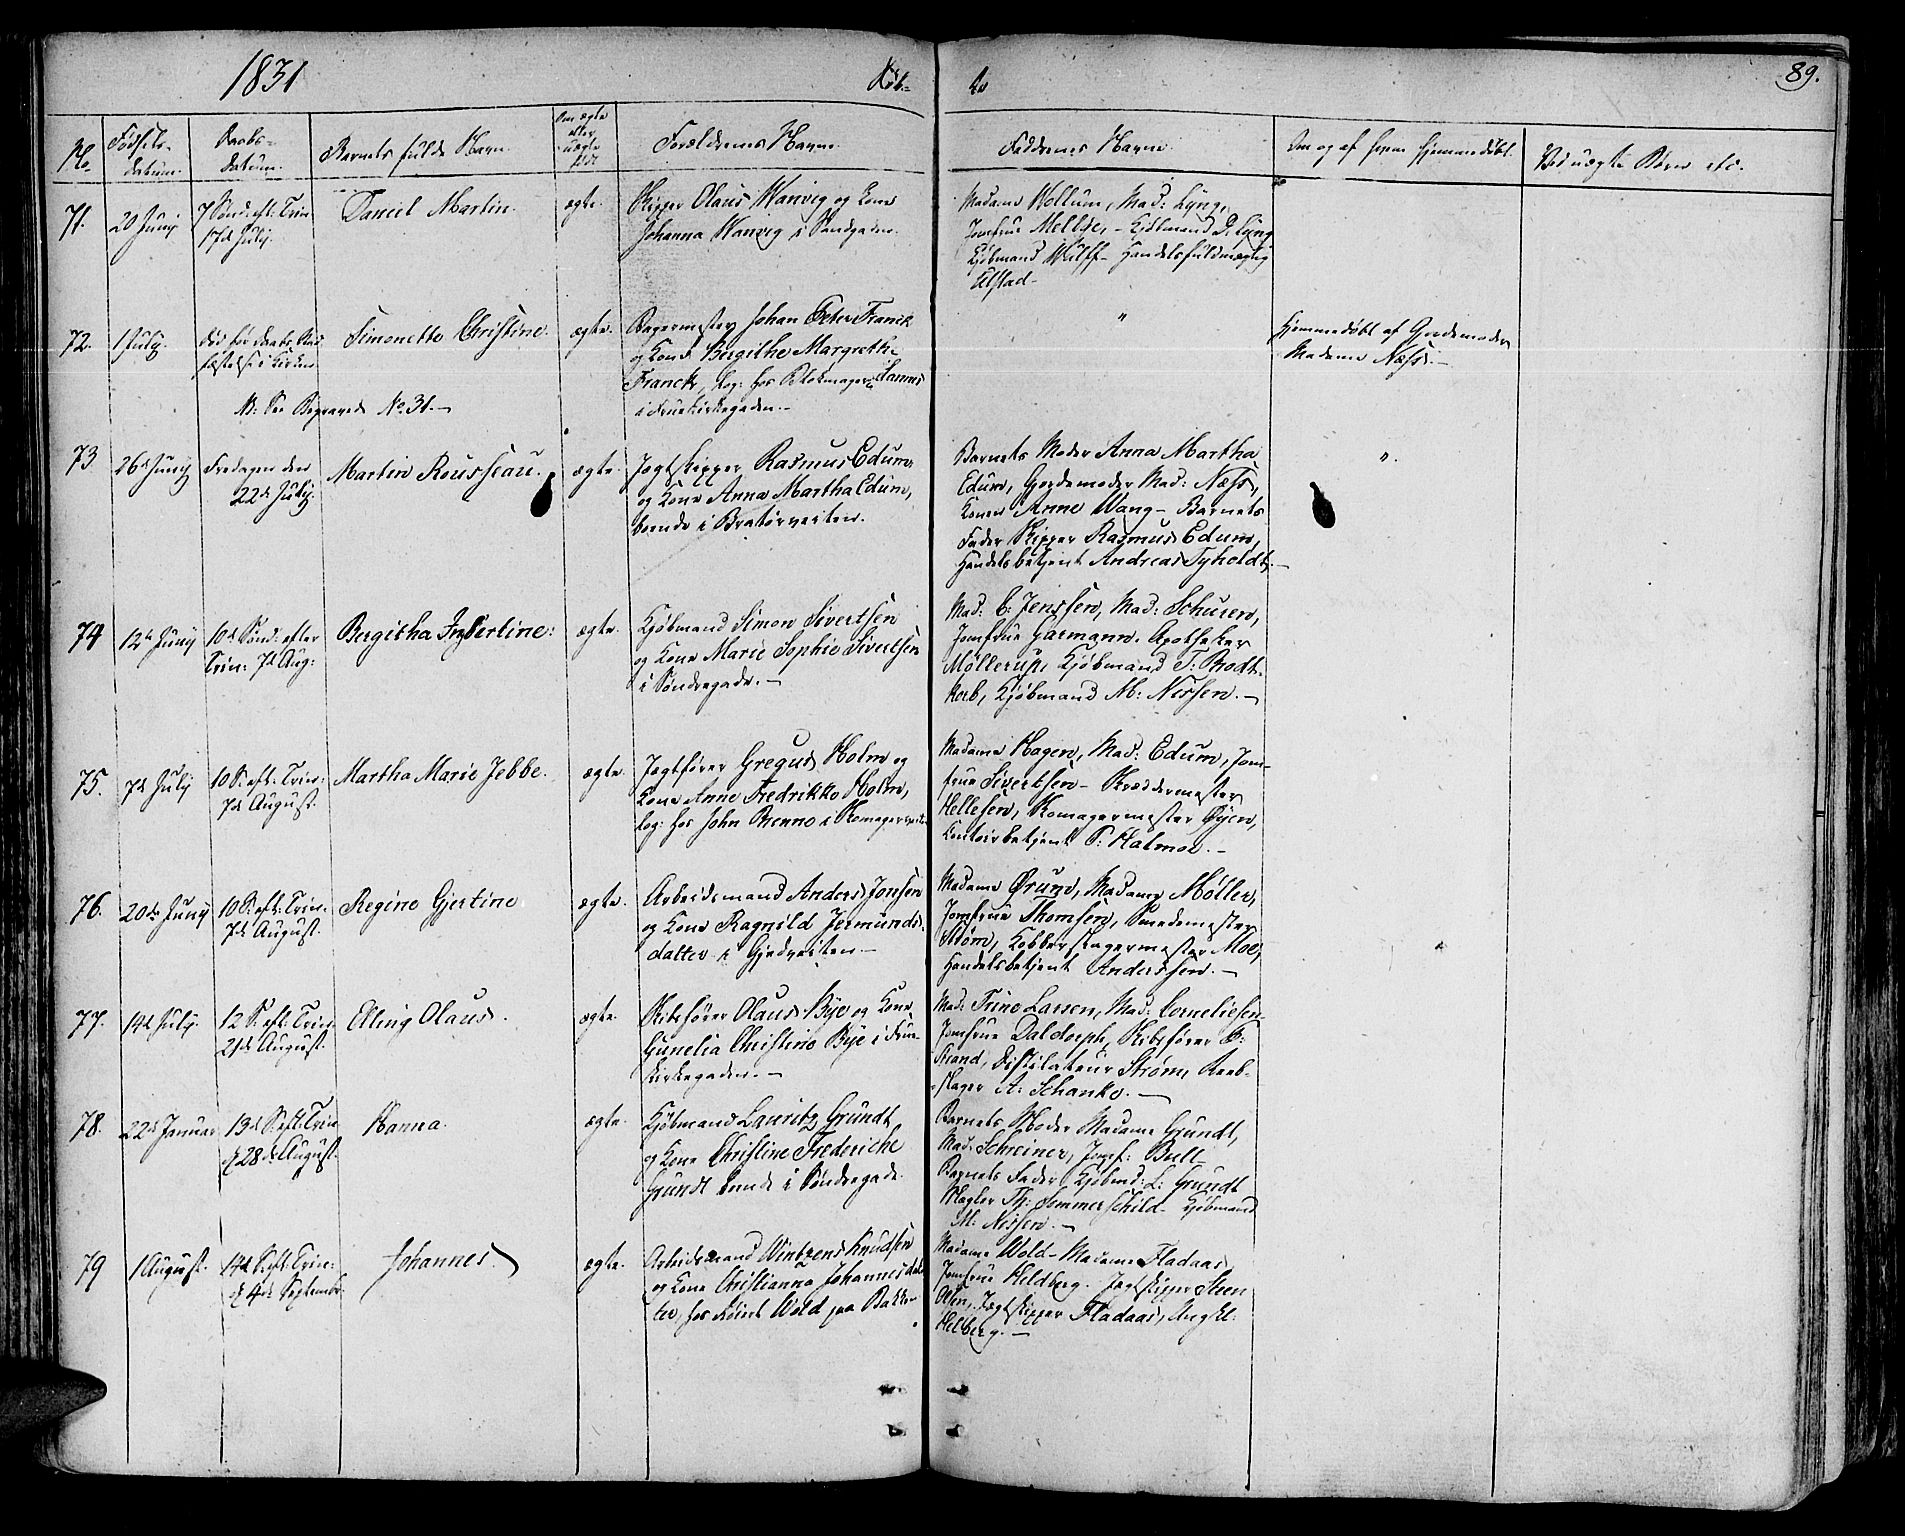 1831
Døb-
te
89.
No.
Fødsels-
datum.
Daabs-
datum.
Barnets fulde Navn.
Om ægte
eller
uægte
født
Forældrenes Navne
Faddrenes Navne.
Om og af hvem hjemmedøbt.
Ved uægte Børn etc.
71.
20 Juny
7 Sønd: eft: Trin:
17de July.
Daniel Martin.
ægte.
Skipper Olaus Wanvig og Kone
Johanna Wanvig i Sandgaden.
Madame Wollum, Mad: Lyng,
Jomfrue Mellbye, - Kjøbmand D. Lyng
Kjøbmand Wulff - Handelsfuldmægtig
Ulstad -
72.
1 July.
død før Daabs Stad-
fæstelse i Kirken
NB: See Begravede No. 31. -
Simonette Christine.
ægte.
Bagermester Johan Peter Franck
og Kone Bergithe Margrethe
Franck, log: hos Blokmager Lannes
i Fruekirkegaden. -
"
Hjemmedøbt af Gjordemoder
Madame Næss. -
73
26de Juny
Fredagen den
22de July.
Martin Rousseau.
ægte.
Jægtskipper Rasmus Edum
og Kone Anna Martha Edum,
boende i Bratørveiten.
Barnets Moder Anna Martha
Edum, Gjordemoder Mad: Næss,
Konen Anne Wang - Barnets
Fader Skipper Rasmus Edum,
Handelsbetjent Andreas Tyholdt. -
".
74
12te Juny
10de Sønd: efter
Trin: 7d Aug:
Bergitha Ingbertine:
ægte.
Kjøbmand Simon Sivertsen
og Kone Marie Sophie Sivertsen
i Søndregade. -
Mad: C: Jenssen, Mad: Schuren,
Jomfrue Garmann. Apotheker
Møllerup, Kjøbmand T: Brodt-
korb, Kjøbmand M: Nissen. -
75.
7de July
10 S: eft: Trin:
7de August.
Martha Marie Jebbe.
ægte.
Jægtfører Gregus Holm og
Kone Anne Fredrikke Holm,
log: hos John Brenno i Skomagerveiten
Madame Hagen, Mad: Edum, Jom-
frue Sivertsen - Skræddermester
Hellesen, Skomagermester Øyen,
Contoirbetjent P: Halmoe. -
76.
20de Juny
10 S: eft: Trin:
7de August.
Regine Gjertine
ægte.
Arbeidsmand Anders Jonsen
og Kone Ragnild Jermunds-
datter i Gjedveiten -
Madame Ørum, Madame Møller,
Jomfrue Thomsen, Smedemester
Strøm, Kobberslagermester Moe,
Handelsbetjent Anderssen. -
77.
14de July.
12 S: eft: Trin:
21de August.
Elling Olaus.
ægte.
Skibsfører Olaus Bye og Kone
Gunelia Christine Bye i Frue-
kirkegaden. -
Mad: Trine Larsen, Mad: Corneliesen
Jomfrue Daldorph, Skibsfører B:
Strand, Distilateur Strøm, Reeb-
slager A: Schanke. -
78.
22de Januar
13de S: eft: Trin
d. 28de August.
Hanna.
ægte.
Kjøbmand Lauritz Grundt
og Kone Christine Frederiche
Grundt boende i Søndregade.
Barnets Moder Madame Grundt,
Mad: Schreiner, Jomf: Bull -
Barnets Fader Kjøbmd: L: Grundt
Mægler Th: Sommerschild - Kjøbmand
M: Nissen. -
79
1 August.
14de S: eft: Trin:
d. 4de Septembr.
Johannes.
ægte.
Arbeidsmand Wintzens Knudsen
og Kone Christianna Johannesdat-
ter, hos Wold paa Bakken
Madame Wold - Madame Fladaas,
Jomfrue Heldberg. Jægtskipper Steen
Olsen, Jægtskipper Fladaas, Ungkl:
Helberg. -